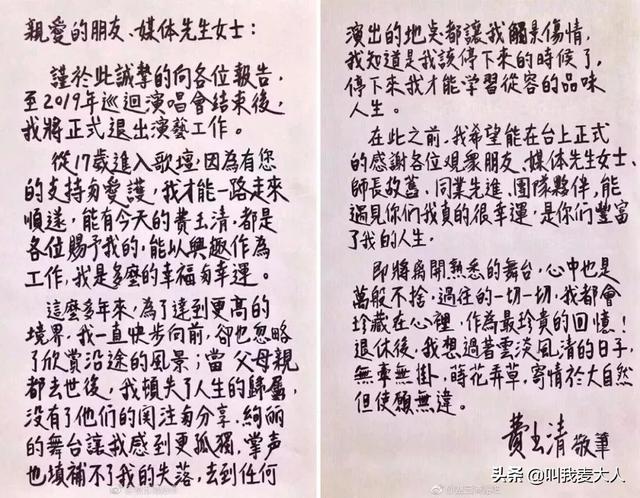 親愛的朋友、媒体先生女士：
謹於此誠摯的向各位報告，
至2019年巡迴演唱會結束後，
我將正式退出演藝工作。
從17歲進入歌壇，因為有您
的支持与愛護，我才能一路走來
順遂，能有今天的費玉清，都是
各位賜予我的，能以興趣作為
工作，我是多麼的幸福与幸運。
這麼多年來，為了達到更高的
境界，我一直快步向前，卻也忽略
了欣賞沿途的風景；當父母親
都去世後，我頓失了人生的歸屬，
没有了他們的関注与分享，絢麗
的舞台讓我感到更孤獨，掌声
也填補不了我的失落，去到任何
演出的地点都讓我觸景傷情，
我知道是我該停下來的時候了，
停下來我才能学習從容的品味
人生。
在此之前，我希望能在台上正式
的感謝各位观衆朋友、媒体先生女士、
師長故舊、同業先進、团隊夥伴，能
遇見你们我真的很幸運，是你们豐富
了我的人生。
即將离開熟悉的舞台，心中也是
萬般不捨，過往的一切一切，我都會
珍藏在心裡，作為最珍貴的回憶！
退休後，我想過著雲淡風清的日子，
無牽無掛，蒔花弄草，寄情於大自然
但使願無違。
費玉清 敬筆
头条 @叫我麦大人